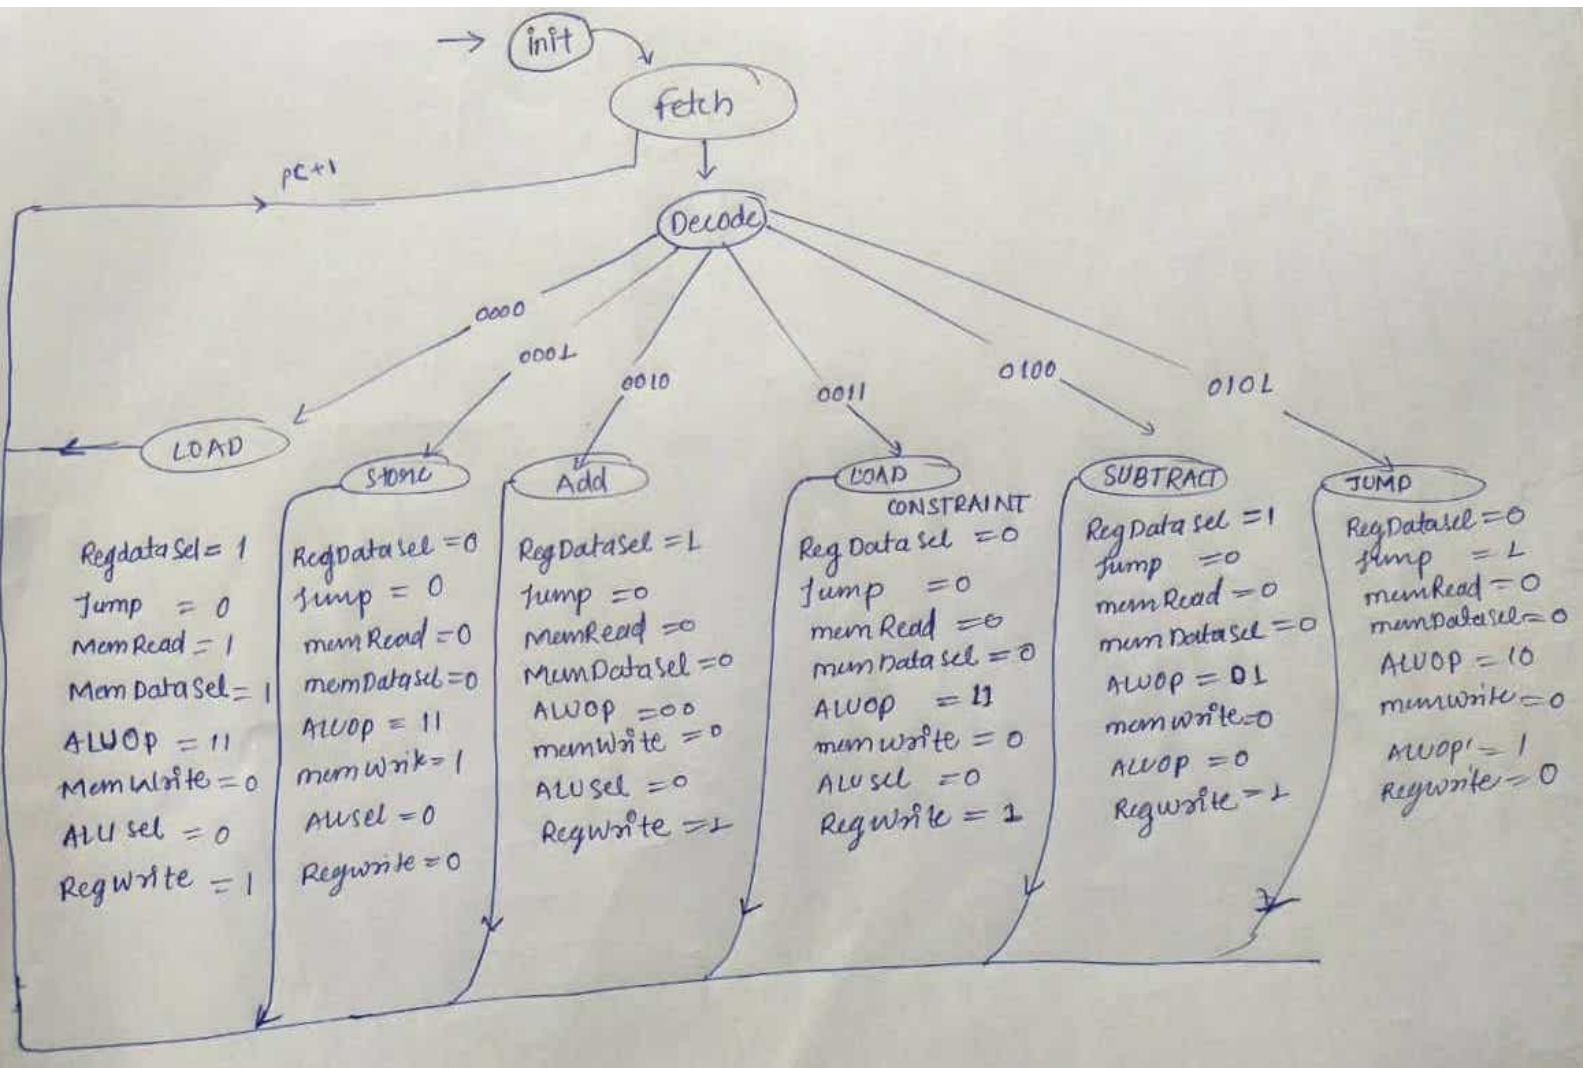 init
fetch
PC+1
Decode
0000
0001
0010
0011
0100
0101
LOAD
RegdataSel = 1
Jump = 0
MemRead = 1
MemDataSel = 1
ALUOp = 11
MemWrite = 0
ALUsel = 0
RegWrite = 1
Store
RegDatasel = 0
Jump = 0
memRead = 0
memDatasel = 0
ALUOP = 11
memWrite = 1
ALUsel = 0
Regwrite = 0
Add
RegDataSel = 1
Jump = 0
MemRead = 0
MemDataSel = 0
ALUOP = 00
memWrite = 0
ALUSel = 0
RegWrite = 1
LOAD
CONSTRAINT
RegDatasel = 0
Jump = 0
memRead = 0
memDatasel = 0
ALUOP = 11
memwrite = 0
ALUsel = 0
RegWrite = 1
SUBTRACT
RegDatasel = 1
Jump = 0
memRead = 0
memDatasel = 0
ALUOP = 01
memwrite = 0
ALUOP = 0
Regwrite = 1
JUMP
RegDatasel = 0
Jump = 1
memRead = 0
memDatasel = 0
ALUOP = 10
memwrite = 0
ALUOP' = 1
Regwrite = 0